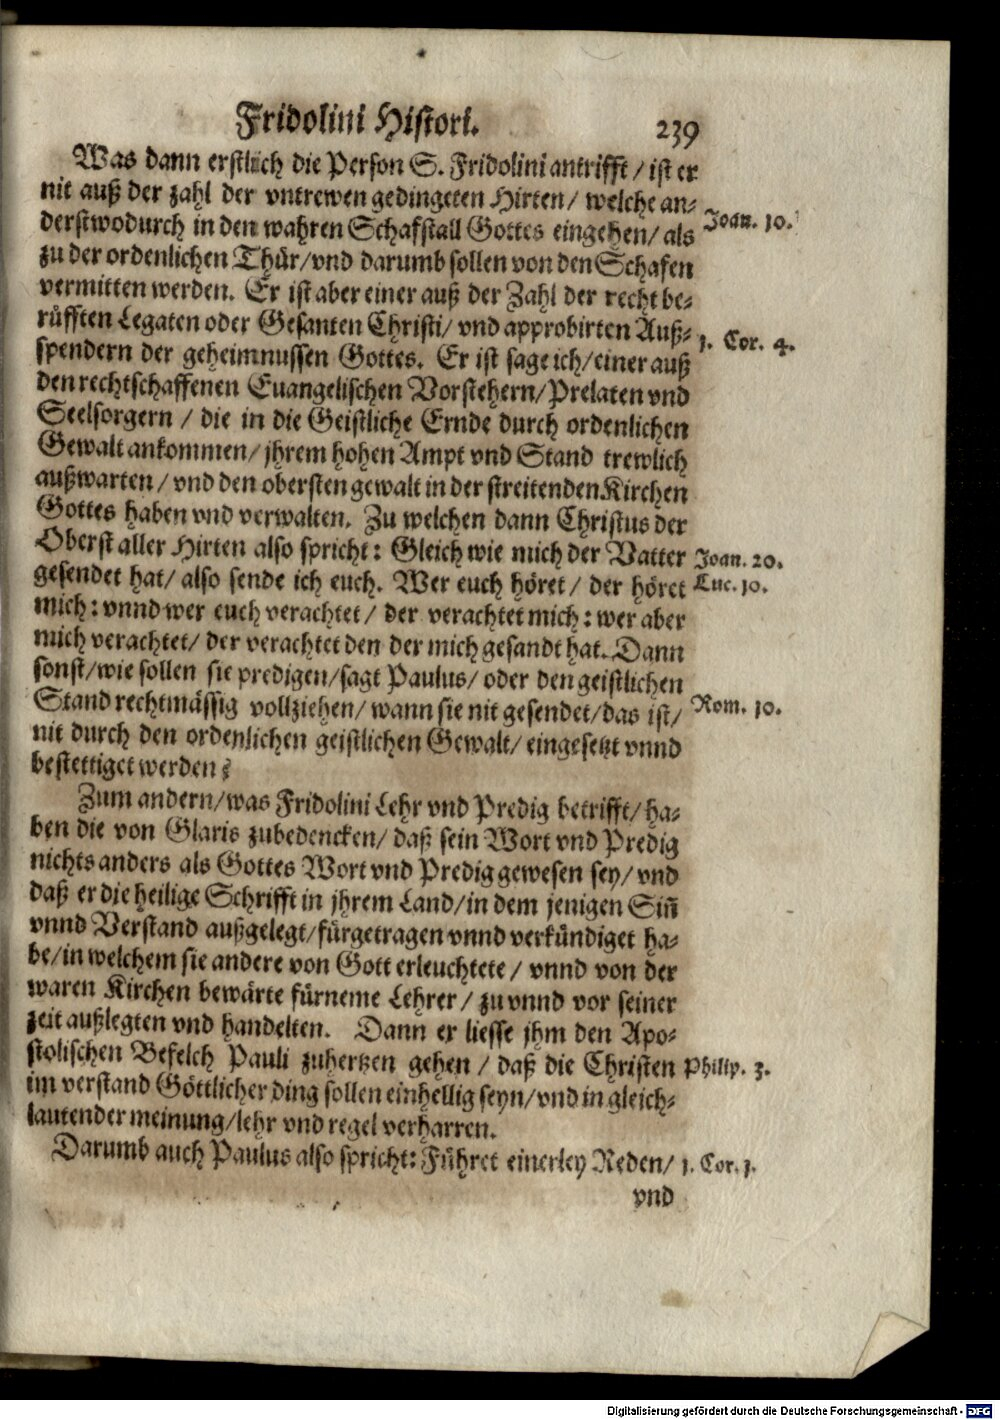 Fridolini Histori. 239
Was dann erstlich die Person S. Fridolini antrifft / ist er
nit auß der zahl der vntrewen gedingeten Hirten / welche an-
derstwodurch in den wahren Schafstall Gottes eingehen / als Joan. 10.
zu der ordenlichen Thür / vnd darumb sollen von den Schafen
vermitten werden. Er ist aber einer auß der Zahl der recht be-
rüfften Legaten oder Gesanten Christi / vnd approbirten Auß- 1. Cor. 4.
spendern der geheimnussen Gottes. Er ist sage ich / einer auß
den rechtschaffenen Euangelischen Vorstehern / Prelaten vnd
Seelsorgern / die in die Geistliche Ernde durch ordenlichen
Gewalt ankommen / jhrem hohen Ampt vnd Stand trewlich
außwarten / vnd den obersten gewalt in der streitenden Kirchen
Gottes haben vnd verwalten. Zu welchen dann Christus der
Oberst aller Hirten also spricht: Gleich wie mich der Vatter Joan. 20.
gesendet hat / also sende ich euch. Wer euch höret / der höret Luc. 10.
mich: vnnd wer euch verachtet / der verachtet mich: wer aber
mich verachtet / der verachtet den der mich gesandt hat. Dann
sonst / wie sollen sie predigen / sagt Paulus / oder den geistlichen
Stand rechtmässig vollziehen / wann sie nit gesendet / das ist / Rom. 10.
nit durch den ordenlichen geistlichen Gewalt / eingesetzt vnnd
bestettiget werden?
Zum andern / was Fridolini Lehr vnd Predig betrifft / ha-
ben die von Glaris zubedencken / daß sein Wort vnd Predig
nichts anders als Gottes Wort vnd Predig gewesen sey / vnd
daß er die heilige Schrifft in jhrem Land / in dem jenigen Siñ
vnnd Verstand außgelegt / fürgetragen vnnd verkündiget ha-
be / in welchem sie andere von Gott erleuchtete / vnnd von der
waren Kirchen bewärte fürneme Lehrer / zu vnnd vor seiner
zeit außlegten vnd handelten. Dann er liesse jhm den Apo-
stolischen Befelch Pauli zuhertzen gehen / daß die Christen Philip. 3.
im verstand Göttlicher ding sollen einhellig seyn / vnd in gleich-
lautender meinung / lehr vnd regel verharren.
Darumb auch Paulus also spricht: Führet einerley Reden / 1. Cor. 1.
vnd
Digitalisierung gefördert durch die Deutsche Forschungsgemeinschaft - DFG